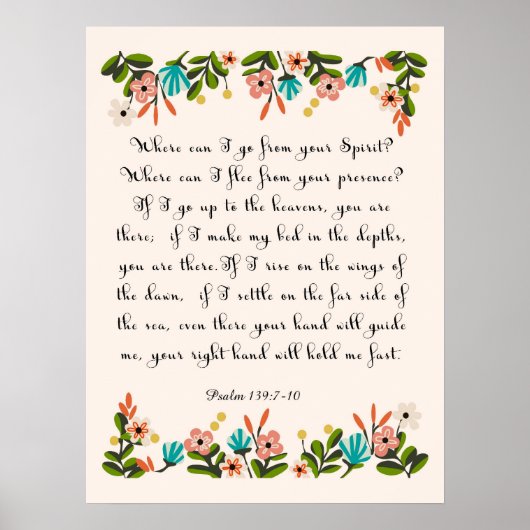 Where can I go from your Spirit?
Where can I flee from your presence?
If I go up to the heavens, you are
there; if I make my bed in the depths,
you are there. If I rise on the wings of
the dawn, if I settle on the far side of
the sea, even there your hand will guide
me, your right hand will hold me fast.
Psalm 139:7-10